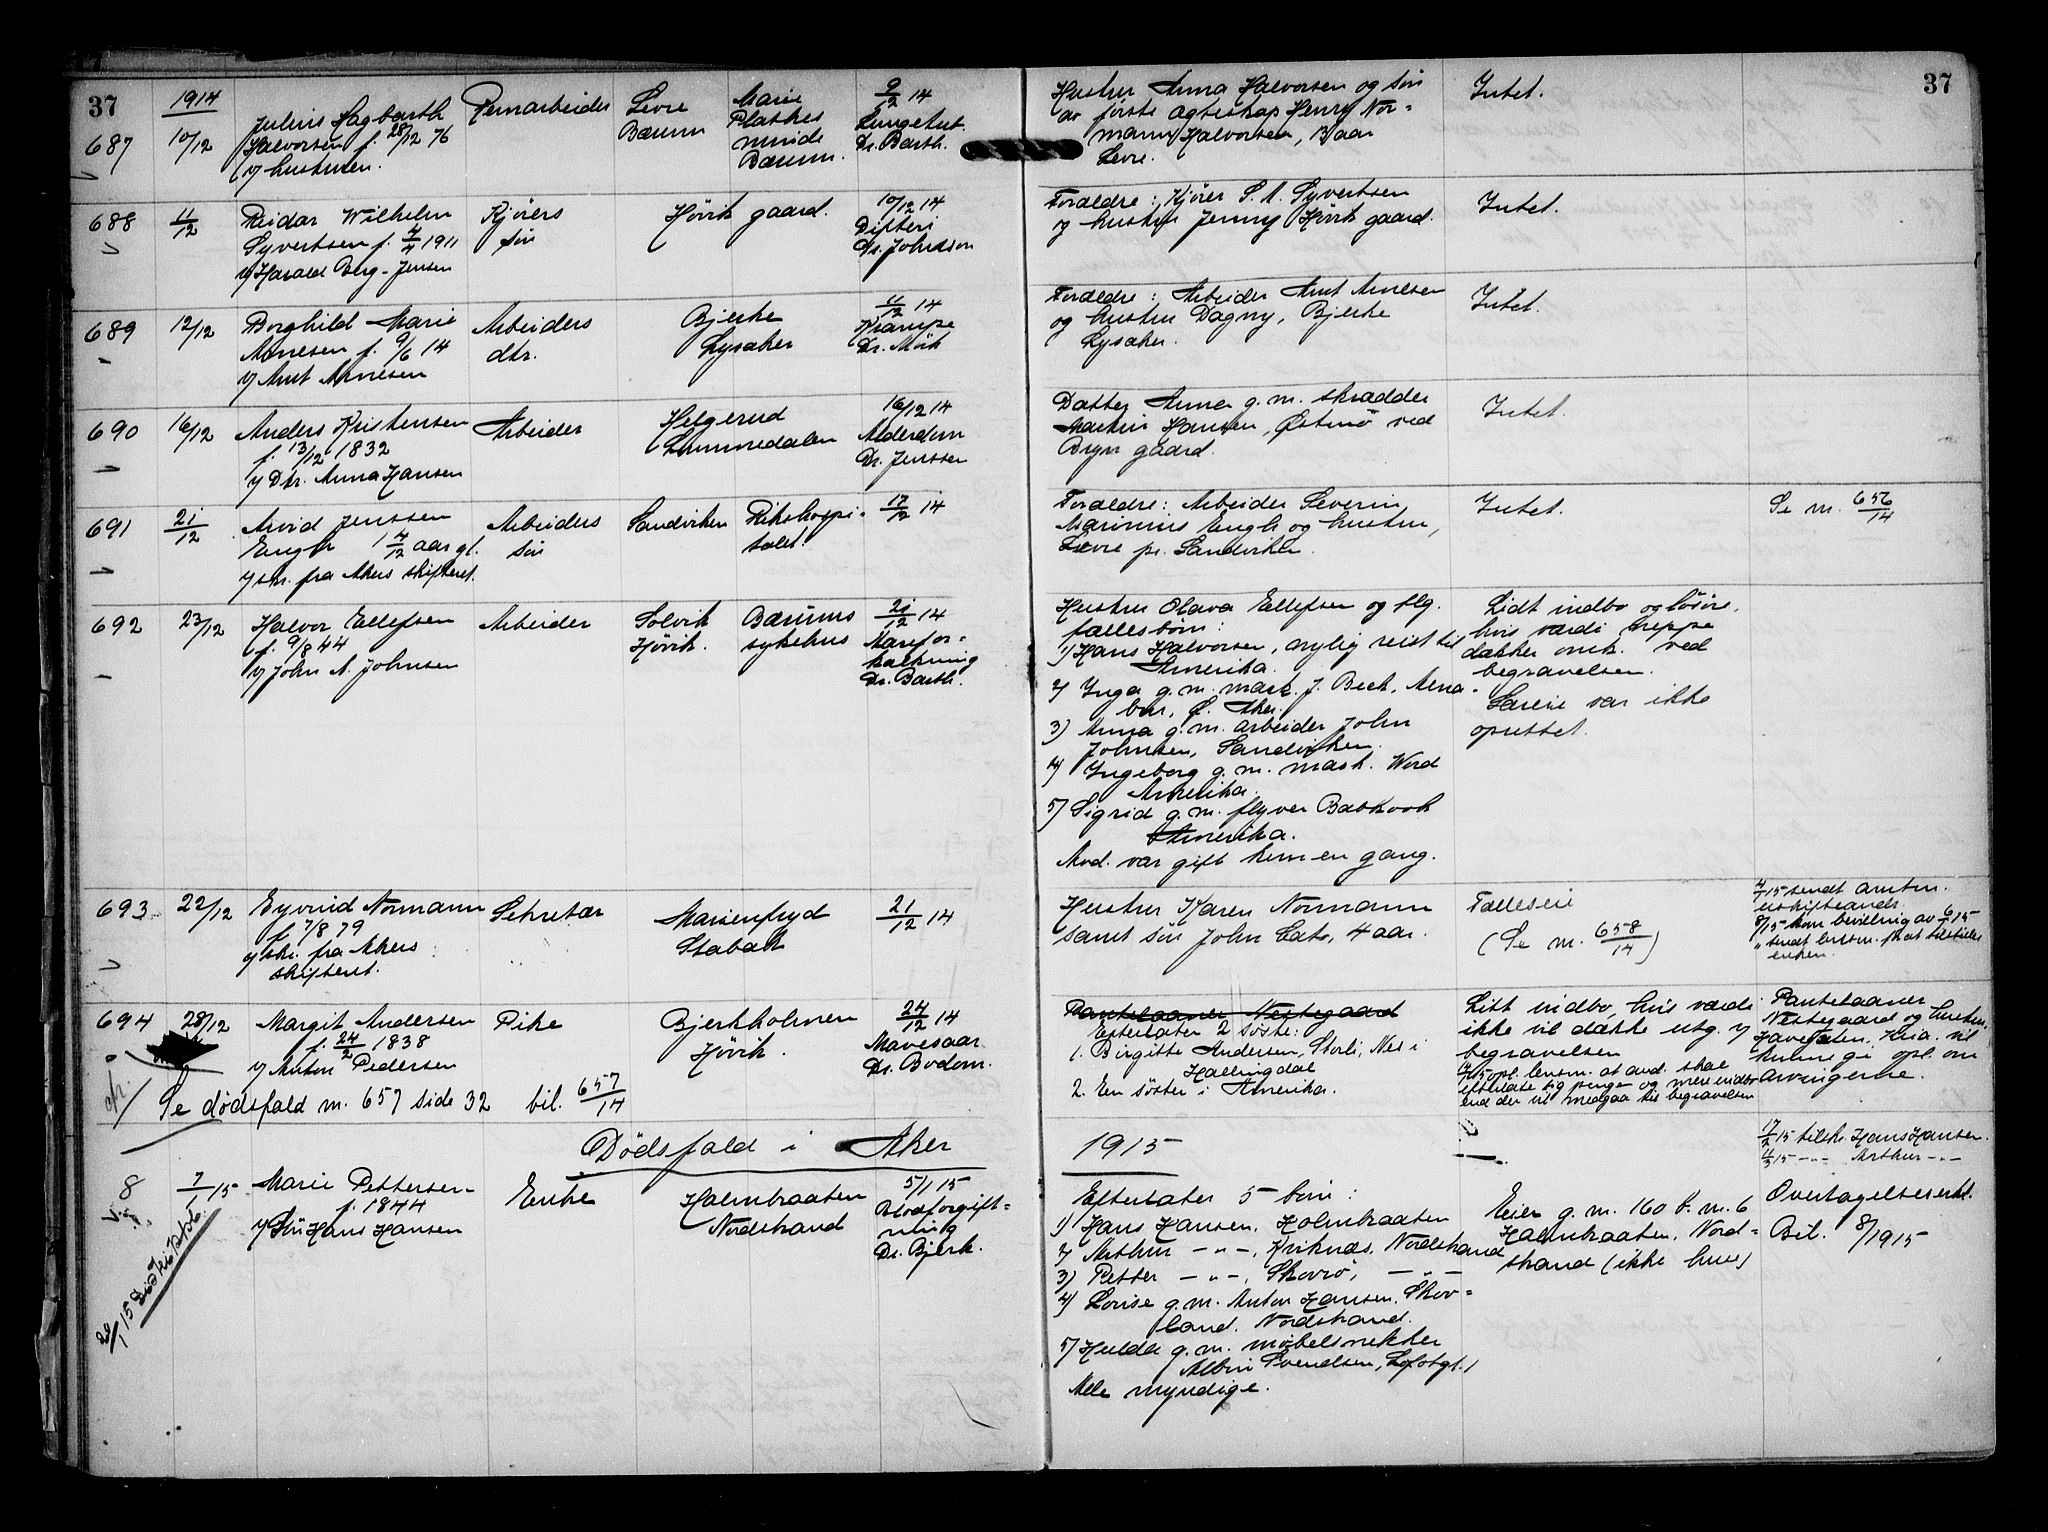 37
1914
37
687
10/12
Julius Hagbarth
Halvorsen f. 28/12 76
v/ hustruen.
Jernarbeider
Levre
Bærum
Marie
Plathes
minde
Bærum.
9/12 14
Lungetub.
Dr. Barth.
Hustru Anna Halvorsen og søn
av første ægteskap Henry Nor-
mann Halvorsen, 13 aar
Levre.
Intet.
688
11/12
Reidar Wilhelm
Syvertsen f. 4/4 1911
v/ Harald Berg-Jensen
Kjørers
søn
Høvik gaard.
10/12 14
Difteri
Dr. Johnson
Forældre: Kjører S. A. Syvertsen
og hustru Jenny Høvik gaard.
Intet.
689
12/12
Borghild Marie
Arnesen f. 9/6 14
v/ Arnt Arnesen
Arbeiders
dtr.
Bjerke
Lysaker
11/12 14
Krampe
Dr. Mørk
Forældre: Arbeider Arnt Arnesen
og hustru Dagny, Bjerke
Lysaker.
Intet.
690
16/12
Anders Kristensen
f. 13/12 1832
v/ Dtr. Anna Hansen
Arbeider
Helgerud
Lommedalen
16/12 14
Alderdom
Dr. Jenssen
Datter Anna g.m. skrædder
Martin Hansen, Østmo ved
Bryn gaard.
Intet.
691
21/12
Arvid Jenssen
Engh 1 4/12 aar gl.
v/ skr. fra Akers skifteret.
Arbeiders
søn
Sandviken
Rikshospi-
talet.
17/12 14
Forældre: Arbeider Severin
Marinius Engh og hustru,
Levre pr. Sandviken.
Intet.
Se nr. 656/14
692
23/12
Halvor Ellefsen
f. 9/8 44
v/ John A. Johnsen
Arbeider
Solvik
Høvik.
Bærums
sykehus
21/12 14
Aarefor-
kalkning
Dr. Barth.
Hustru Olava Ellefsen og flg.
fællesbørn:
1) Hans Halvorsen, nylig reist til
Amerika.
2) Inga g.m. mask. J. Beck, Arna-
bur, Ø. Aker.
3) Anna g.m. arbeider John
Johnsen, Sandviken.
4) Ingeborg g.m. mask. Word
Amerika.
5) Sigrid g.m. flyver Babkook
Amerika.
Avd. var gift kun en gang.
Lidt indbo og løsøre,
hvis værdi neppe
dækker omk. ved
begravelsen.
Særeie var ikke
oprettet.
693
22/12
Eyvind Normann
f. 7/8 79
v/ skr. fra Akers
skifteret.
Sekretær
Marienfryd
Stabæk
21/12 14
Hustru Karen Normann
samt søn John Cato, 4 aar.
Fælleseie
(Se nr. 658/14)
4/1 15 sendt amtm.
uskifteandr.
8/1 15 kom bevilling av 6/1 15
" sendt lensm. for at tilstilles
enken.
694
28/12
Margit Andersen
f. 24/2 1838
v/ Anton Pedersen
Pike
Bjerkholmen
Høvik.
24/12 14
Mavesaar
Dr. Bodom.
Pantelaaner Nestegaard
Efterlater 2 søstre:
1. Birgitte Andersen, Storli, Nes i
Hallingdal
2. En søster i Amerika.
Litt indbo, hvis værdi
ikke vil dække utg. v/
begravelsen
4/1 15 opl. lensm. at avd. skal
efterlate sig penge og mere indbo
end der vil medgaa til begravelsen
Pantelaaner
Nestegaard og hustru,
Havegaten, Kria. vil
kunne gi opl. om
arvingerne.
Se dødsfald nr. 657 side 32 bil. 657/14
Dödsfald i Aker
1915
17/2 15 tilsk. Hans Hansen.
4/3 15 -"- Arthur -"-
V. 8
7/1 15
Marie Pettersen
f. 1844
v/ Søn Hans Hansen
Enke
Holmbraaten
Nordstrand
5/1 15
Blodforgift-
ning
Dr. Bjerk.
Efterlater 5 børn:
1) Hans Hansen, Holmbraaten
2) Arthur -"-, Kviknæs, Nordstrand
3) Petter -"-, Skovrø, -"-
4) Lovise g.m. Anton Hansen, Skov-
land, Nordstrand.
5) Hulda g.m. møbelsnekker
Albin Svendsen, Lofotgt. 1
Alle myndige.
Eier g.nr. 160 b.nr. 6
Holmbraaten, Nord-
strand (ikke hus)
Overtagelseserkl.
Bil. 8/1915